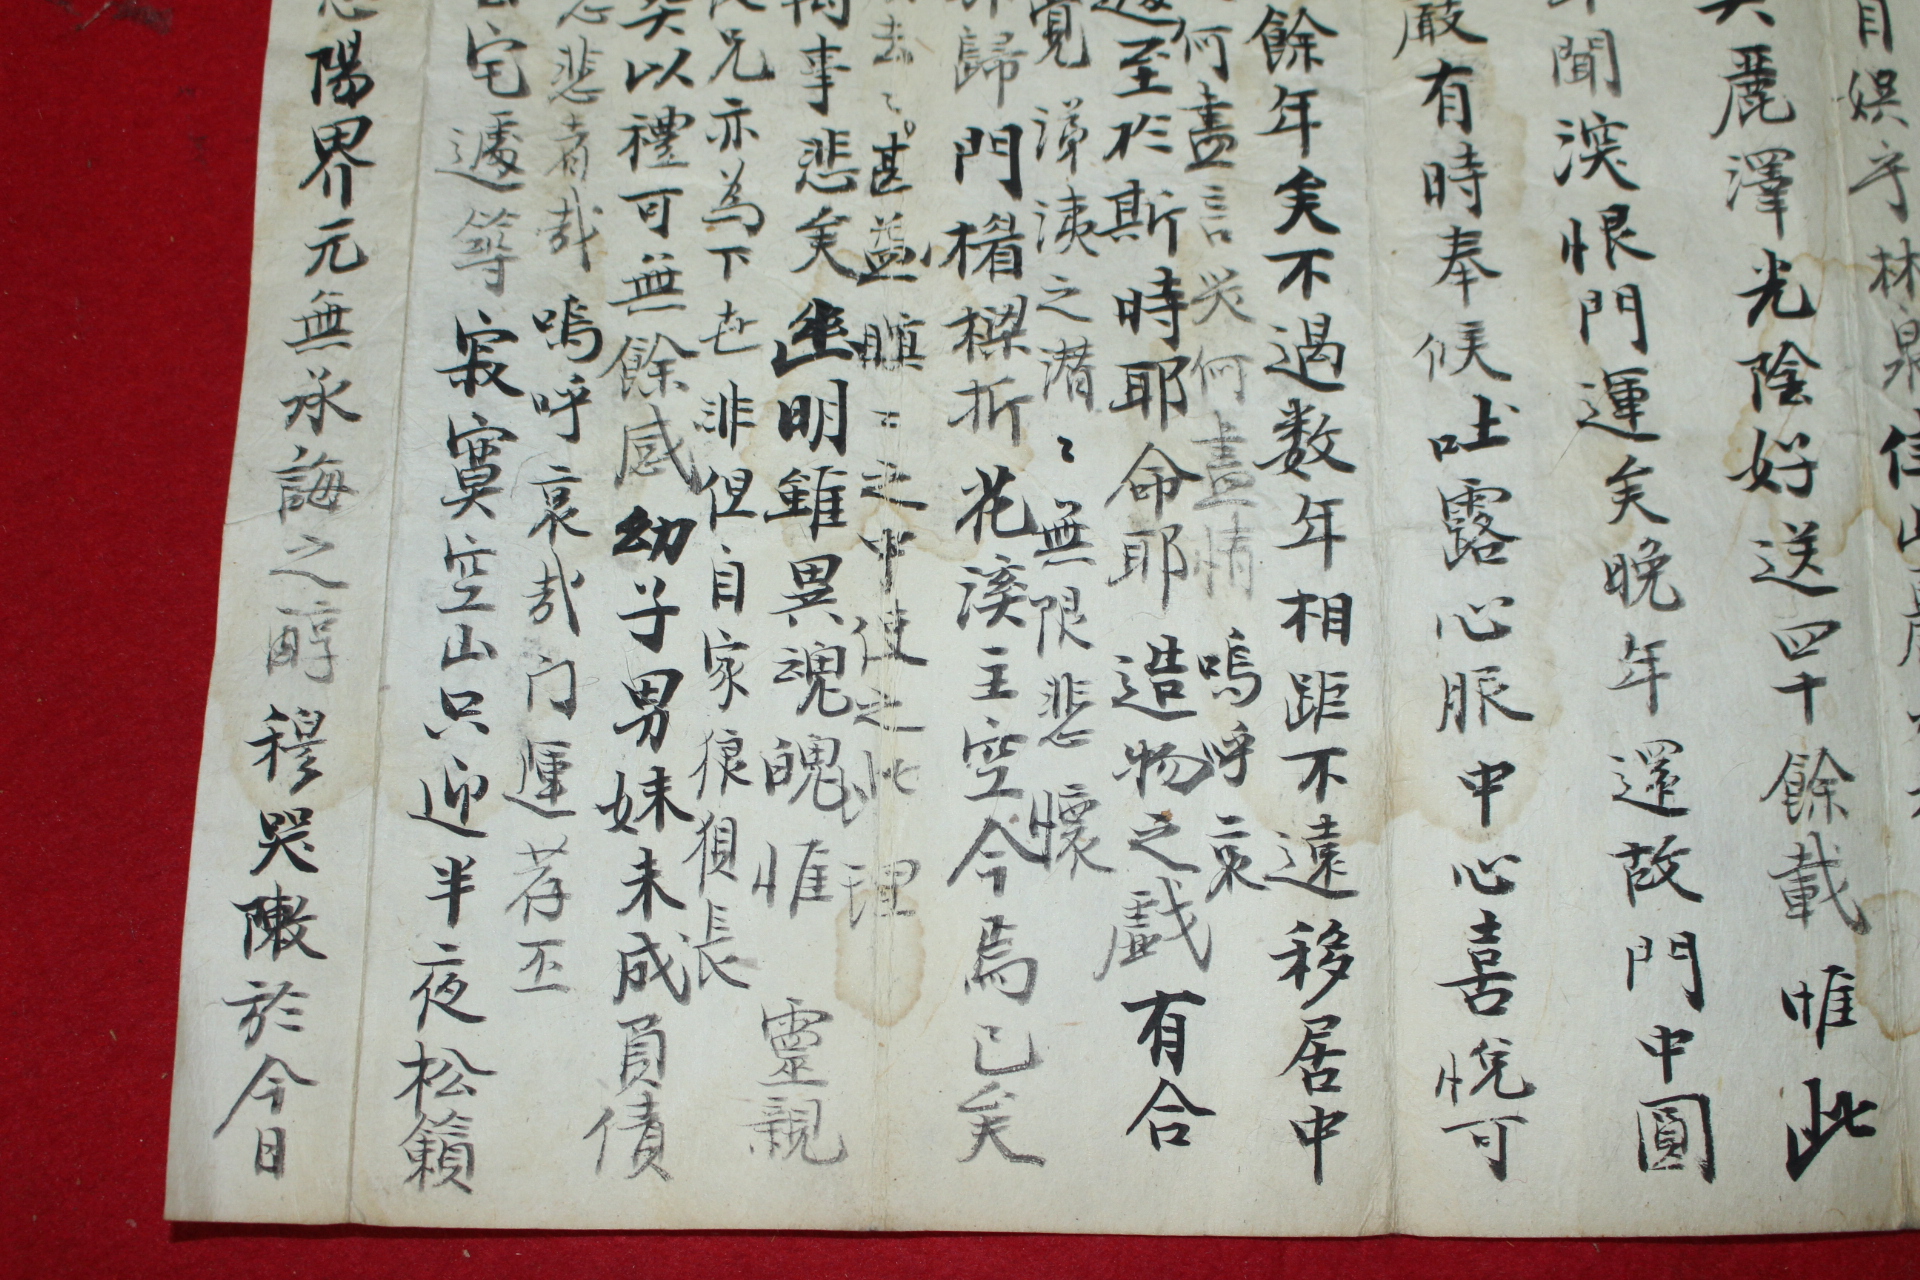 自娛乎林泉佳山
麗澤光陰好送四十餘載惟此
聞深恨門運矣晚年還故門中圓
嚴有時奉候吐露心脤中心喜悅可
餘年矣不過数年相距不遠移居中
何盡言哭何盡情嗚呼哀
至於斯時耶命耶造物之戲有合
覓涕洟之潸〻無限悲懷
歸門楣樑折花溪主空今焉已矣
去〻甚益瞋〻之中使之此理
事悲矣幽明雖異魂魄惟靈親
兄亦為下世非但自家狼狽長
矣以禮可無餘感幼子男妹未成負債
悲者哉嗚呼哀哉门運荐丕
宅遽等寂寞空山只迎半夜松籟
陽界元無承誨之醇穆哭陳於今日